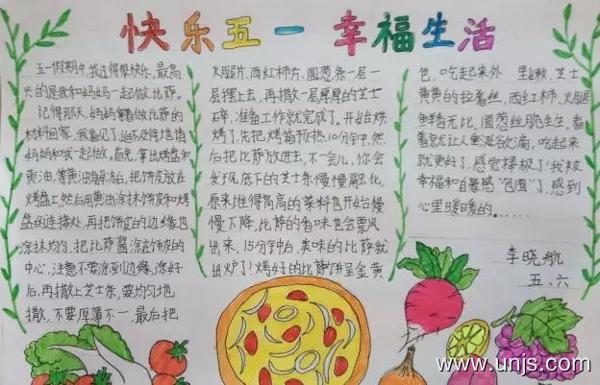 快乐五一 幸福生活
五一假期中,我过得很快乐,最高
兴的是我和妈妈一起做比萨。
记得那天,妈妈拿着做比萨的
材料回家,我看见了,迫不及待地揞
妈妈和我一起做。首先,拿出烤盘和
黄油,等黄油溶冻后,把饼皮放在
烤盘上,然后用黄油涂抹饼皮和烤
盘的连接处,再把饼皮的边缘也
涂抹均匀。把比萨酱涂在饼皮的
中心,注意不要涂到边缘,涂好
后,再撒上芝士条,要均匀地
撒,不要厚薄不一,最后把
火腿片,西红柿片,圆葱条一层一
层摆上去,再撒一层厚厚的芝士
碎,准备工作就完成了。开始烘
烤了,先把烤箱预热10分钟,然
后把比萨放进去,不一会儿,你会
发现底下的芝士条慢慢融化,
原来堆得高高的菜料也开始慢
慢下降,比萨的香味也会飘
出来,15分钟后,美味的比萨就
出炉了!烤好的比萨饼呈金黄
色,吃起来外 里嫩,芝士
黄黄的拉着丝,西红柿、火腿
鲜香无比,圆葱丝脆生生,看
着就让人垂涎欲滴,吃起来
就更好了,感觉棒极了!我被
幸福和自豪感“包围”了,感到
心里暖暖的......
李晓航
五、六
www.unjs.com